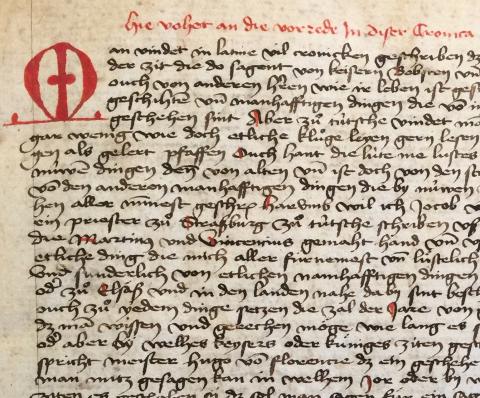 Hie vohet an die vorrede In diser Cronica
Man vindet in latine vil cronicken geschriben dz
der zit die do sagent von keisern Bobsten vn̄
ouch von anderen hr̄en wie ir leben ist gesch
geschihten vn̄ manhafftigen dingen die vō in
geschehen sint Aber zů tútsche vindet ma
gar wenig wie doch etliche kluͦge leyen gern lesen
gen als gelert pfaffen Ouch hant die lúte me lustes
núwen dingen den von alten vn̄ ist doch von den st
vō den anderen manhafftigen dingen die by núwen
hen aller minest geschrẹ harumb wil ich Jocob v
ein priester zů Straßburg zů tútsche schriben vß
die Martinus vnd Vincencius gemaht hand vn̄ v
etliche ding die mich aller fúrnemest vn̄ lústelich
Vnd sunderlich von etlichen namhafftigen dingen
od' zů Elsaß vnd in den landen nahe daby sint besch
ouch zů yedem dinge setzen die zal der Jare von g
dz man wissen vnd gerechen möge wie lang es s
od' aber by welhes keysers oder kúniges ziten gesch
spricht meister hugo vō florencie dz ein geschehe
man nútz gesagen kan in welhem Jor oder by w
ziten es geschehen sy dz sol man sagen fúr ein sag